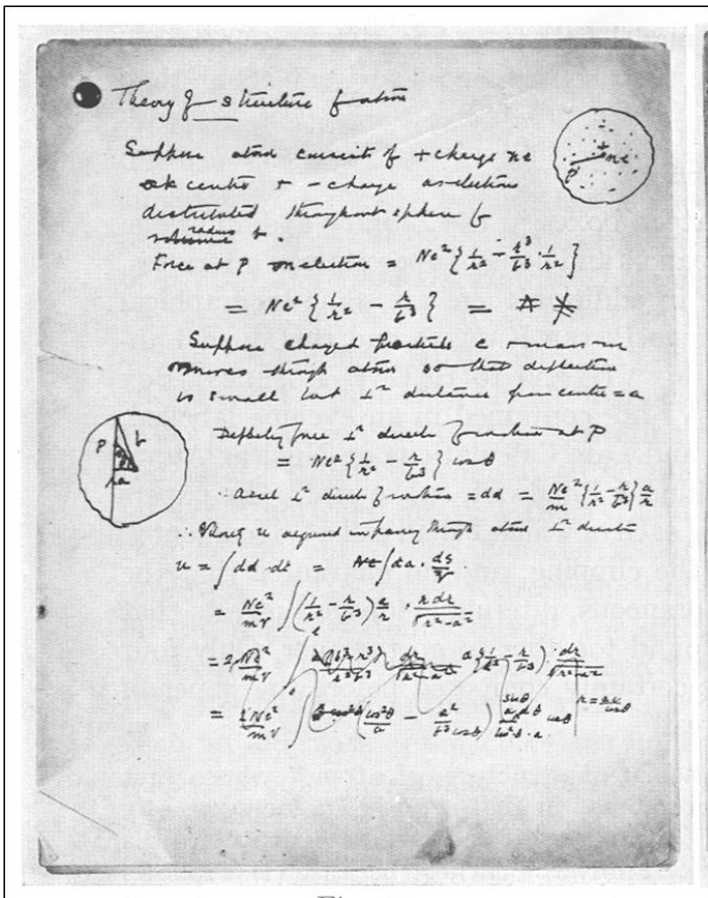 Theory of structure of atom
Suppose atom consists of + charge ne
at centre + - charge as electrons
distributed throughout sphere of
radius b.
Force at P on electron = Ne² { 1/r² - r³/b³ · 1/r² }
= Ne² { 1/r² - r/b³ } =
Suppose charged particle e + mass m
moves through atom so that deflection
is small but ⊥ʳ distance from centre = a
Deflecting force ⊥ʳ direction of motion at P
= Ne² { 1/r² - r/b³ } cos θ
∴ accel ⊥ʳ direction of motion = dd = Ne²/m { 1/r² - r/b³ } a/r
∴ u acquired in passing through atom ⊥ʳ direction
u = ∫ dd · dt = ∫ · ds/v
= Ne²/mv ∫ ( 1/r² - r/b³ ) a/r · r dr/√(r² - a²)
= 2 Ne²/mv ∫ a { 1/r² - r/b³ } · dr/√(r² - a²)
= 2Ne²/mv ∫ ( cos²θ/a - a²/b³ cos θ )
P
ne
+
P
b
a